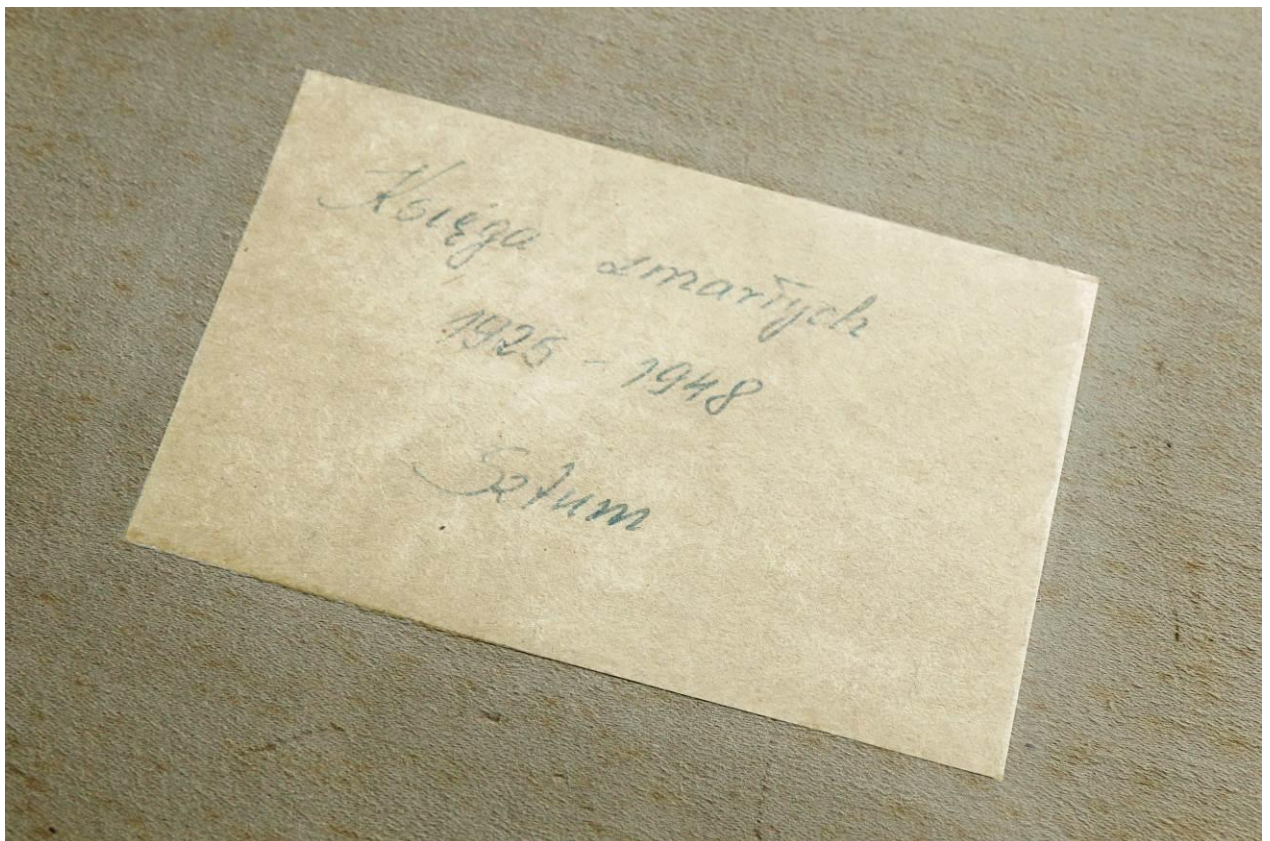 Księga zmarłych
1925 - 1948
Sztum